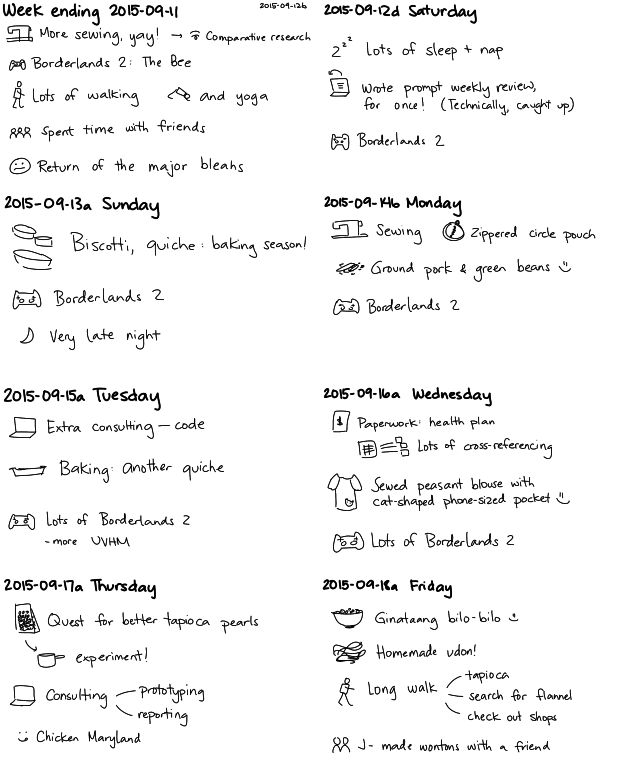 Week ending 2015-09-11
2015-09-12b
More sewing, yay! → Comparative research
Borderlands 2: The Bee
Lots of walking and yoga
Spent time with friends
Return of the major blehs
2015-09-12d Saturday
Lots of sleep + nap
Wrote prompt weekly review,
for once! (Technically, caught up)
Borderlands 2
2015-09-13a Sunday
Biscotti, quiche: baking season!
Borderlands 2
Very late night
2015-09-14b Monday
Sewing Zippered circle pouch
Ground pork & green beans
Borderlands 2
2015-09-15a Tuesday
Extra consulting – code
Baking: another quiche
Lots of Borderlands 2
- more UVHM
2015-09-16a Wednesday
Paperwork: health plan
Lots of cross-referencing
Sewed peasant blouse with
cat-shaped phone-sized pocket
Lots of Borderlands 2
2015-09-17a Thursday
Quest for better tapioca pearls
experiment!
Consulting
prototyping
reporting
Chicken Maryland
2015-09-18a Friday
Ginataang bilo-bilo
Homemade udon!
Long walk
tapioca
search for flannel
check out shops
J- made wontons with a friend